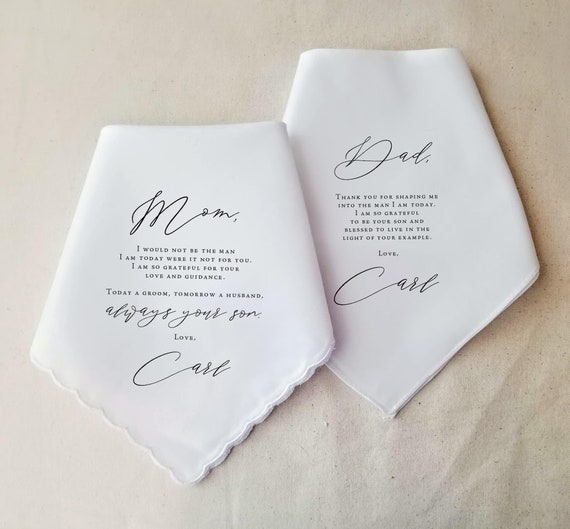 Mom,
I would not be the man
I am today were it not for you.
I am so grateful for your
love and guidance.
Today a groom, tomorrow a husband,
always your son.
Love,
Carl
Dad,
Thank you for shaping me
into the man I am today.
I am so grateful
to be your son and
blessed to live in the
light of your example.
Love,
Carl